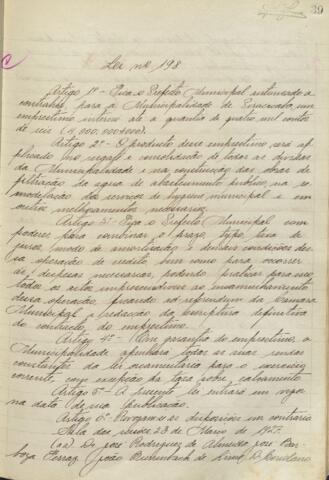 39
Lei nº 198
Artigo 1º - Fica o Prefeito Municipal autorisado a
contrahir, para a Municipalidade de Piracicaba, um
emprestimo interno até a quantia de quatro mil contos
de reis (4.000.000$000).
Artigo 2º - O producto desse emprestimo será ap-
plicado no resgate e consolidação de todas as dividas
da Municipalidade e na construcção das obras de
filtração da agua de abastecimento publico, na re-
modelação dos serviços de hygiene municipal e em
outros melhoramentos
Artigo 3º - Fica o Prefeito Municipal com
poderes para combinar o prazo, typo, taxa de
juros, modo de amortização e demais condições des-
sa operação de credito bem como para occorrer
as despezas necessarias, podendo praticar para isso
todos os actos imprescindiveis ao encaminhamento
dessa operação, ficando ad referendum da Camara
Municipal a redacção da escriptura definitiva
do contracto do emprestimo.
Artigo 4º - Em garantia do emprestimo, a
Municipalidade apenhará todas as suas rendas
constantes da lei orçamentaria para o exercicio
corrente, com excepção da taxa sobre calçamento.
Artigo 5º - A presente lei entrará em vigor
na data de sua publicação.
Artigo 6º - Revogam-se as disposições em contrario.
Sala das sessões, 23 de Março de 1927.
(aa) Dr. José Rodrigues de Almeida, José Bar-
boza Ferraz, João